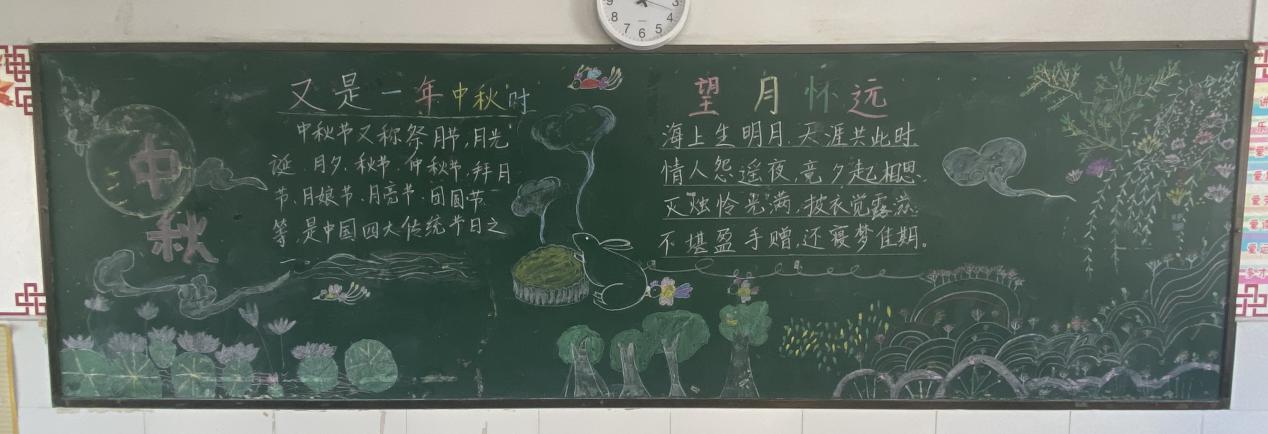 中
秋
又是一年中秋时
中秋节又称祭月节,月光
诞、月夕、秋节、仲秋节、拜月
节、月娘节、月亮节、团圆节
等,是中国四大传统节日之
一。
望月怀远
海上生明月,天涯共此时.
情人怨遥夜,竟夕起相思.
灭烛怜光满,披衣觉露滋.
不堪盈手赠,还寝梦佳期。
9 8 7 6 5 4 3